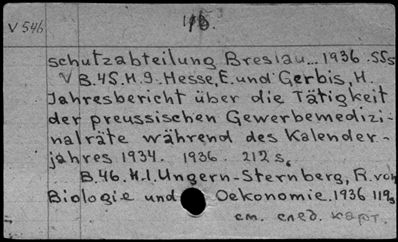 V 546
schutzabteilung Breslau... 1936. 55s
V B.45. H.9. Hesse, E. und Gerbis, H.
Jahresbericht über die Tätigkeit
der preussischen Gewerbemedizi-
nalräte während des Kalender-
jahres 1934. 1936. 212 s.
B.46. H.1. Ungern-Sternberg, R. von
Biologie und Oekonomie. 1936 119s
см. след. карт.